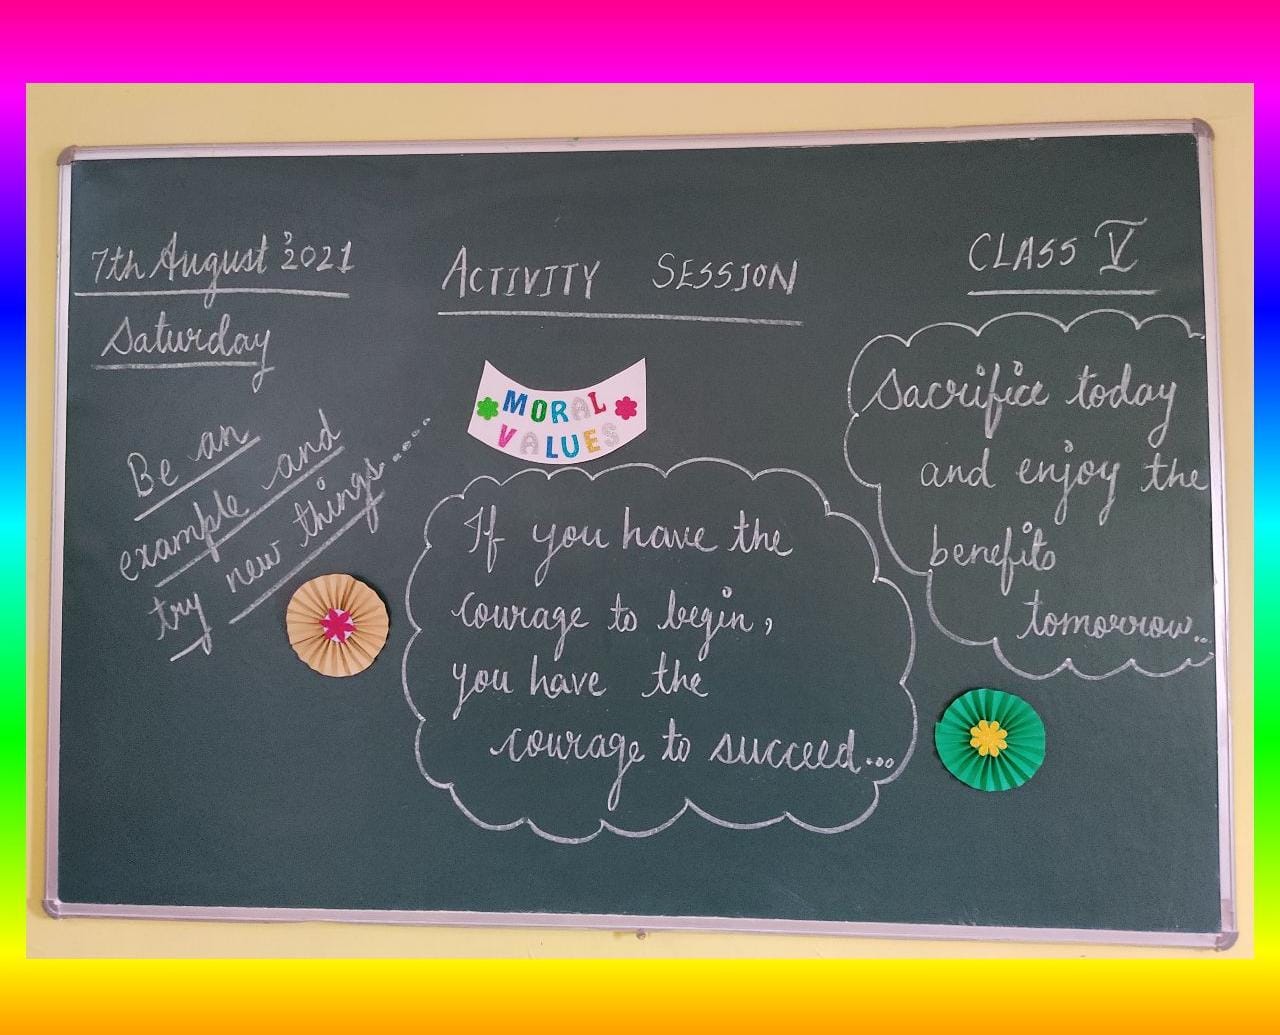 7th August'2021
Saturday
ACTIVITY SESSION
CLASS V
Be an
example and
try new things.....
MORAL
VALUES
If you have the
courage to begin,
you have the
courage to succeed...
Sacrifice today
and enjoy the
benefits
tomorrow...